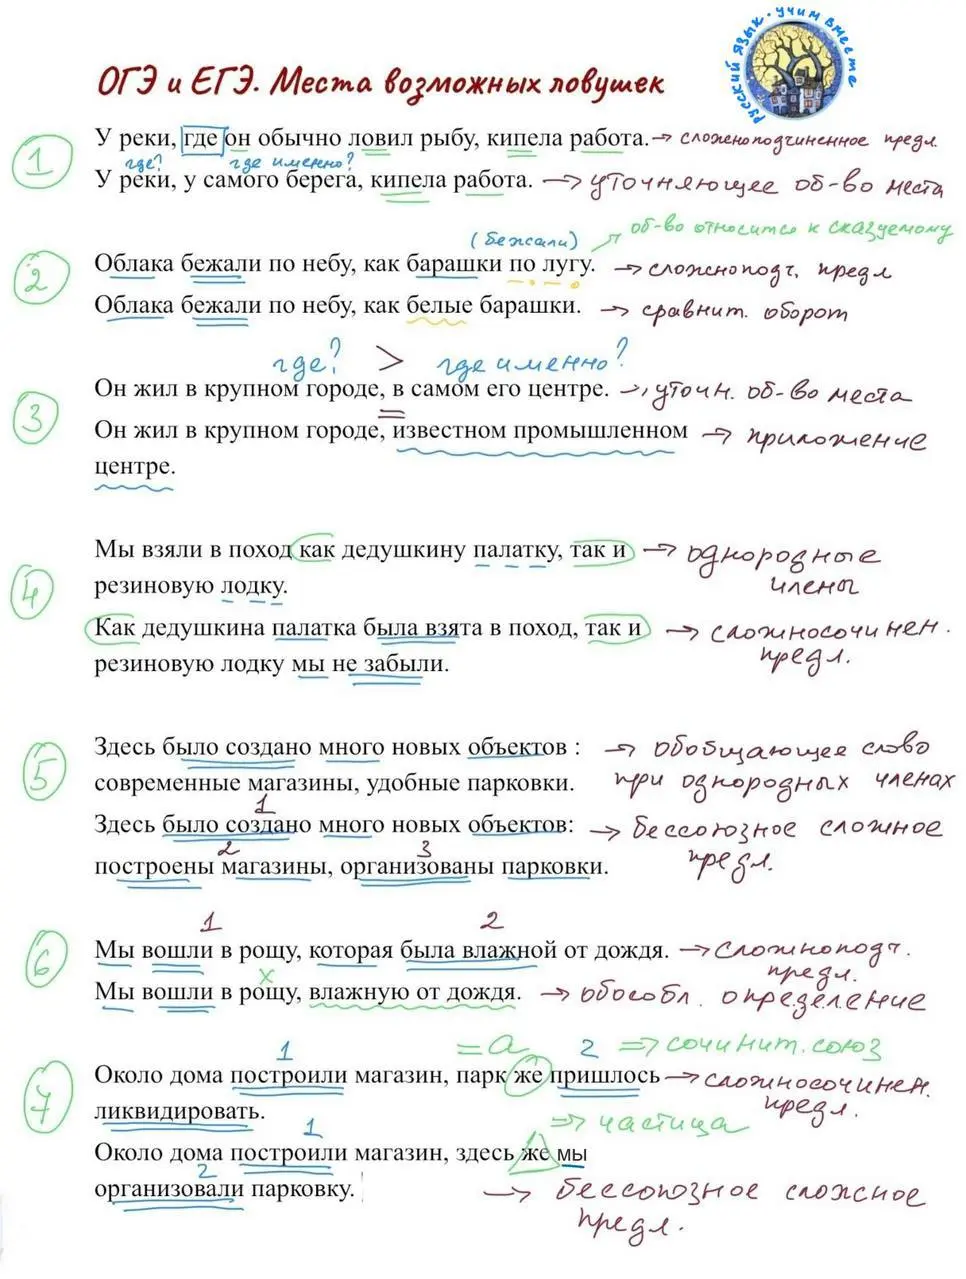 Русский язык · учим вместе
ОГЭ и ЕГЭ. Места возможных ловушек
1
У реки, где он обычно ловил рыбу, кипела работа. → сложноподчиненное предл.
где? где именно?
У реки, у самого берега, кипела работа. → уточняющее об-во места
(бежали) об-во относится к сказуемому
2
Облака бежали по небу, как барашки по лугу. → сложноподч. предл
Облака бежали по небу, как белые барашки. → сравнит. оборот
где? > где именно?
3
Он жил в крупном городе, в самом его центре. → уточн. об-во места
=
Он жил в крупном городе, известном промышленном → приложение
центре.
4
Мы взяли в поход как дедушкину палатку, так и → однородные
резиновую лодку. члены
Как дедушкина палатка была взята в поход, так и → сложносочинен.
резиновую лодку мы не забыли. предл.
5
Здесь было создано много новых объектов : → обобщающее слово
современные магазины, удобные парковки. при однородных членах
1
Здесь было создано много новых объектов: → бессоюзное сложное
2 3
построены магазины, организованы парковки. предл.
1 2
6
Мы вошли в рощу, которая была влажной от дождя. → сложноподч.
х предл.
Мы вошли в рощу, влажную от дождя. → обособл. определение
1 = а 2 ⇒ сочинит. союз
7
Около дома построили магазин, парк же пришлось → сложносочинен.
ликвидировать. предл.
1 ⇒ частица
Около дома построили магазин, здесь же мы
2
организовали парковку. → бессоюзное сложное
предл.